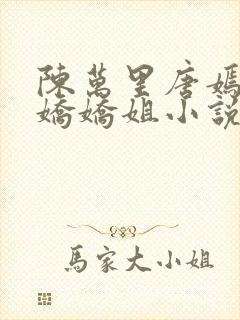 陳萬里唐嫣
嬌嬌姐小說
馬家大小姐